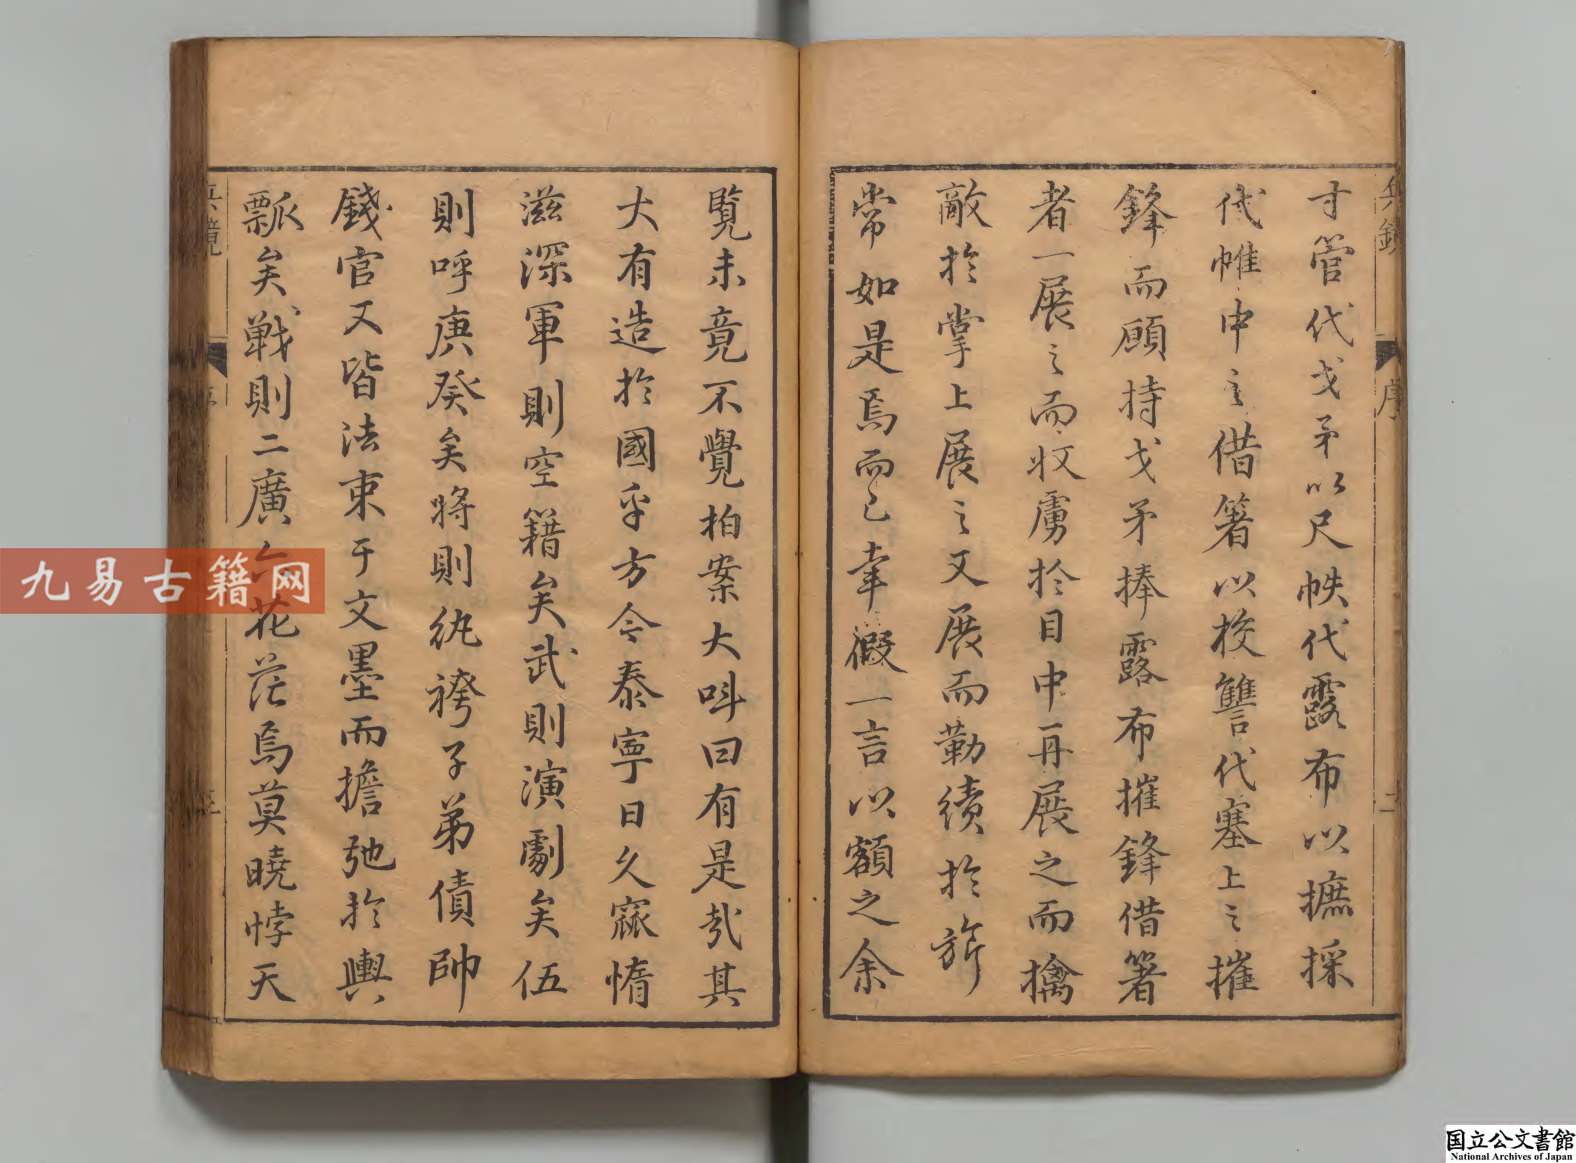 寸管代戈矛以尺帙代露布以摭採
代帷中之借箸以挍讐代塞上之摧
鋒而顧持戈矛捧露布摧鋒借箸
者一展之而收虜於目中再展之而擒
敵於掌上展之又展而勒績於旂
常如是焉而已幸假一言以額之余
覧未竟不覺拍案大呌曰有是㢤其
大有造於國乎方今泰寧日久窳惰
滋深軍則空籍矣武則演劇矣伍
則呼庚癸矣將則紈袴子弟債帥
錢官又皆法束于文墨而擔弛於輿
瓢矣戰則二廣六花茫焉莫曉悖天
兵鏡
序
二
兵鏡
序
三
九易古籍网
国立公文書館
National Archives of Japan